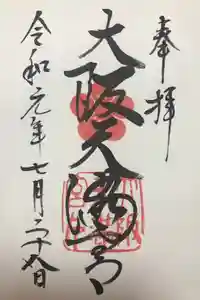 奉拝
大阪天満宮
令和元年七月二十八日